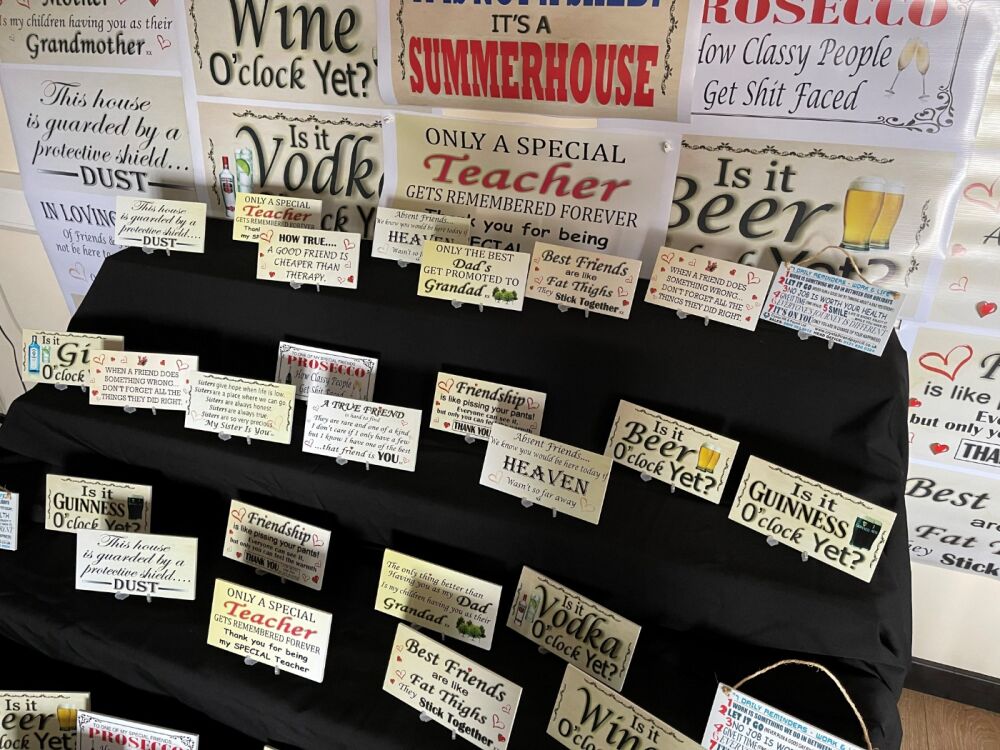 Mother
Is my children having you as their
Grandmother xx
Wine
O'clock Yet?
IT'S A
SUMMERHOUSE
PROSECCO
How Classy People
Get Shit Faced
This house
is guarded by a
protective shield....
DUST
Is it
Vodka
ONLY A SPECIAL
Teacher
GETS REMEMBERED FOREVER
you for being
Is it
Beer
Yet?
IN LOVING
Of Friends &
not be here to
This house
is guarded by a
protective shield....
DUST
ONLY A SPECIAL
Teacher
GETS REMEMBERED FOREVER
HOW TRUE....
A GOOD FRIEND IS
CHEAPER THAN
THERAPY.
Absent Friends....
We know you would be here today if
HEAVEN
Wasn't so
ONLY THE BEST
Dad's
GET PROMOTED TO
Grandad xx
Best Friends
are like
Fat Thighs
They Stick Together xx
WHEN A FRIEND DOES
SOMETHING WRONG...
DON'T FORGET ALL THE
THINGS THEY DID RIGHT.
DAILY REMINDERS - WORK & LIFE
2 LET IT GO
3 NO JOB IS WORTH YOUR HEALTH
Is it
Gi
O'cloc
WHEN A FRIEND DOES
SOMETHING WRONG...
DON'T FORGET ALL THE
THINGS THEY DID RIGHT.
Sisters give hope when life is low.
Sisters are a place where we can go.
Sisters are always honest.
Sisters are always true.
Sisters are so very precious
My Sister Is You
TO ONE OF MY SPECIAL FRIENDS
PROSECCO
How Classy People
Get Shit Faced
A TRUE FRIEND
is hard to find
They are rare and one of a kind
I don't care if I only have a few
but I know I have one of the best
...that friend is YOU
Friendship
is like pissing your pants!
Everyone can see it,
but only you can feel
THANK YOU
Absent Friends....
We know you would be here today if
HEAVEN
Wasn't so far away
Is it
Beer
O'clock Yet?
Is it
GUINNESS
O'clock Yet?
is like
but only yo
THA
Best
are
Fat T
They Stick
Is it
GUINNESS
O'clock Yet?
This house
is guarded by a
protective shield....
DUST
Friendship
is like pissing your pants!
Everyone can see it,
but only you can feel the warmth
THANK YOU
ONLY A SPECIAL
Teacher
GETS REMEMBERED FOREVER
Thank you for being
my SPECIAL Teacher
The only thing better than
Having you as my Dad
Is my children having you as their
Grandad xx
Best Friends
are like
Fat Thighs
They Stick Together
Is it
Vodka
O'clock Yet?
Is it
Wine
O'clock
Is it
eer
ck Yet?
TO ONE OF MY SPECIAL FRIENDS
PROSECCO
DAILY REMINDERS - WORK &
2 LET IT GO
3 NO JOB IS WO